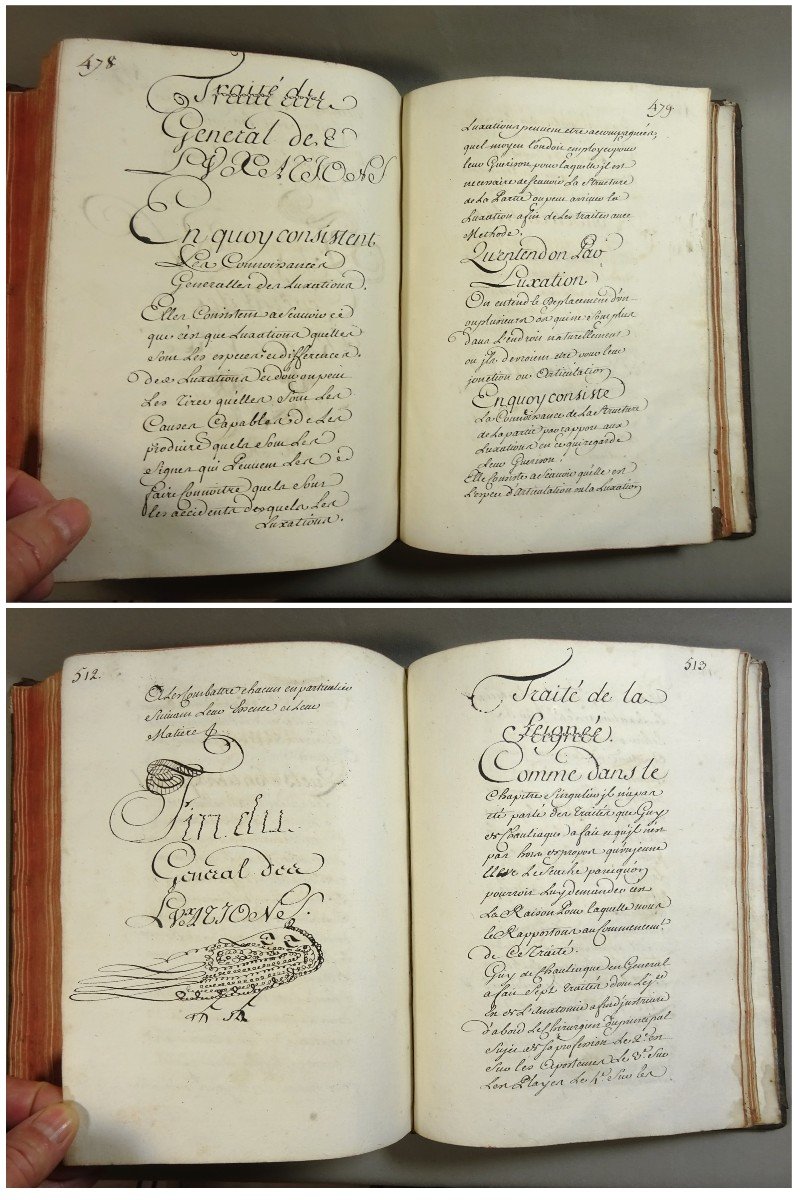 478
Traité du
General des
LVXATIONS
En quoy consistent
Les Connoissances
Generalles des Luxations.
Elles Consistent a scavoir ce
que c'est que Luxations quelles
sont Les especes et differences
des Luxations et dou on peut
Les tirer quelles sont Les
Causes Capables de Les
produire quels sont Les
signes qui peuvent Les
faire connoitre quels sont
les accidents desquels Les
Luxations.
479
Luxations peuvent etre accompagnées,
quel moyen l'on doit employer pour
leur Guerison pour laquelle il est
necessaire de scavoir La Structure
de La Partie ou peut arriver la
Luxation afin de Les traiter avec
Methode.
Qu'entend on Par
Luxation.
On entend le Deplacement d'un
ou plusieurs os qui ne sont plus
dans L'endroit naturellement
ou ils devroient etre pour leur
jonction ou Articulation
En quoy consiste
La Connoissance de La Structure
de La partie par rapport aux
Luxations en ce qui regarde
Leur Guerison.
Elle consiste a scavoir qu'elle est
L'espece d'Articulation ou la Luxation
512.
Et Les Combattre chacun en particulier
suivant Leur Essence et Leur
Matiere
Fin du
General des
LVXATIONS.
513
Traité de la
Seignée.
Comme dans le
Chapitre Singulier il n'a pas
été parlé des Traités que Guy
de Chauliaque a fait et qu'il n'est
pas hors de propos qu'un jeune
Eleve Le Scache parcequ'on
pourroit Luy demander c'est
La Raison Pour laquelle nous
le Rapportons au Commencemt.
de Ce Traité.
Guy de Chauliaque en General
a fait Sept Traités dont Le 1er
est de L'Anatomie afin d'instruire
d'abord Le Chirurgien du principal
Sujet de sa profession Le 2e. est
sur les Apostemes Le 3e. sur
Les Playes Le 4e. sur les